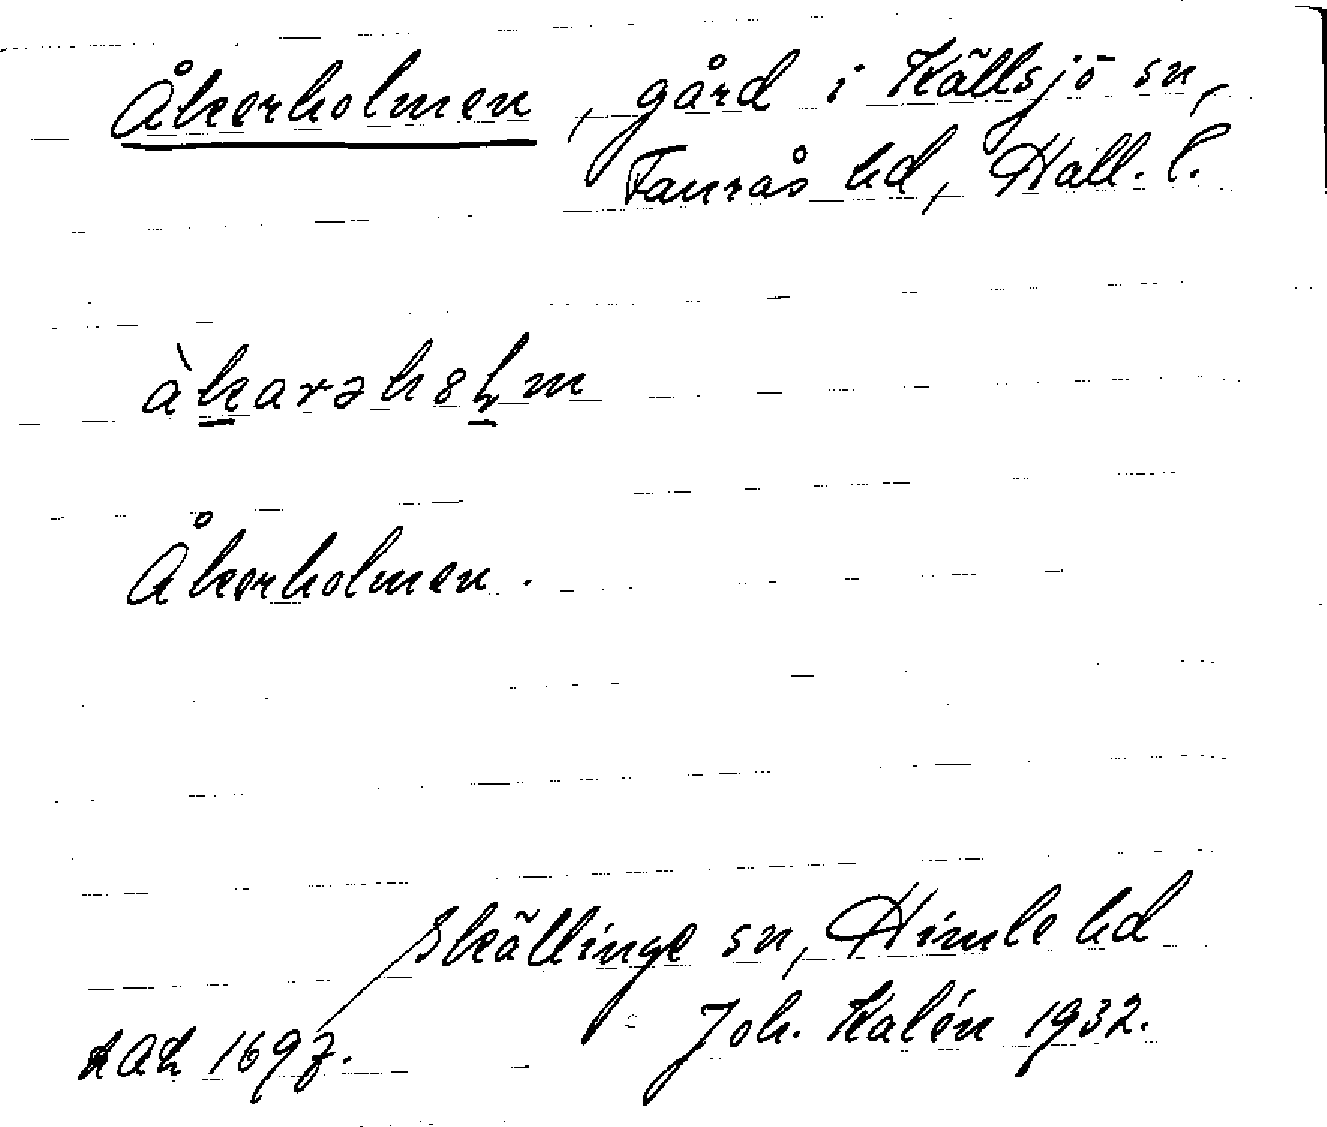 Åkerholmen, gård i Källsjö sn,
Faurås hd, Hall. l.
àkarəh 8lm
Åkerholmen.
Skällinge sn, Himle hd
LAL 1697. Joh. Kalén 1932.